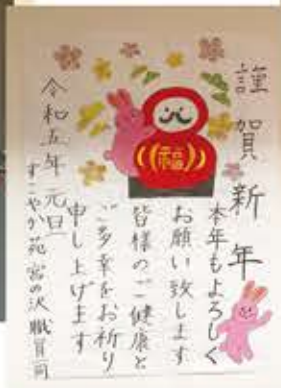 謹賀新年
本年もよろしく
お願い致します
皆様のご健康と
ご多幸をお祈り
申し上げます
令和五年 元旦
すこやか苑 宮の沢 職員一同
福